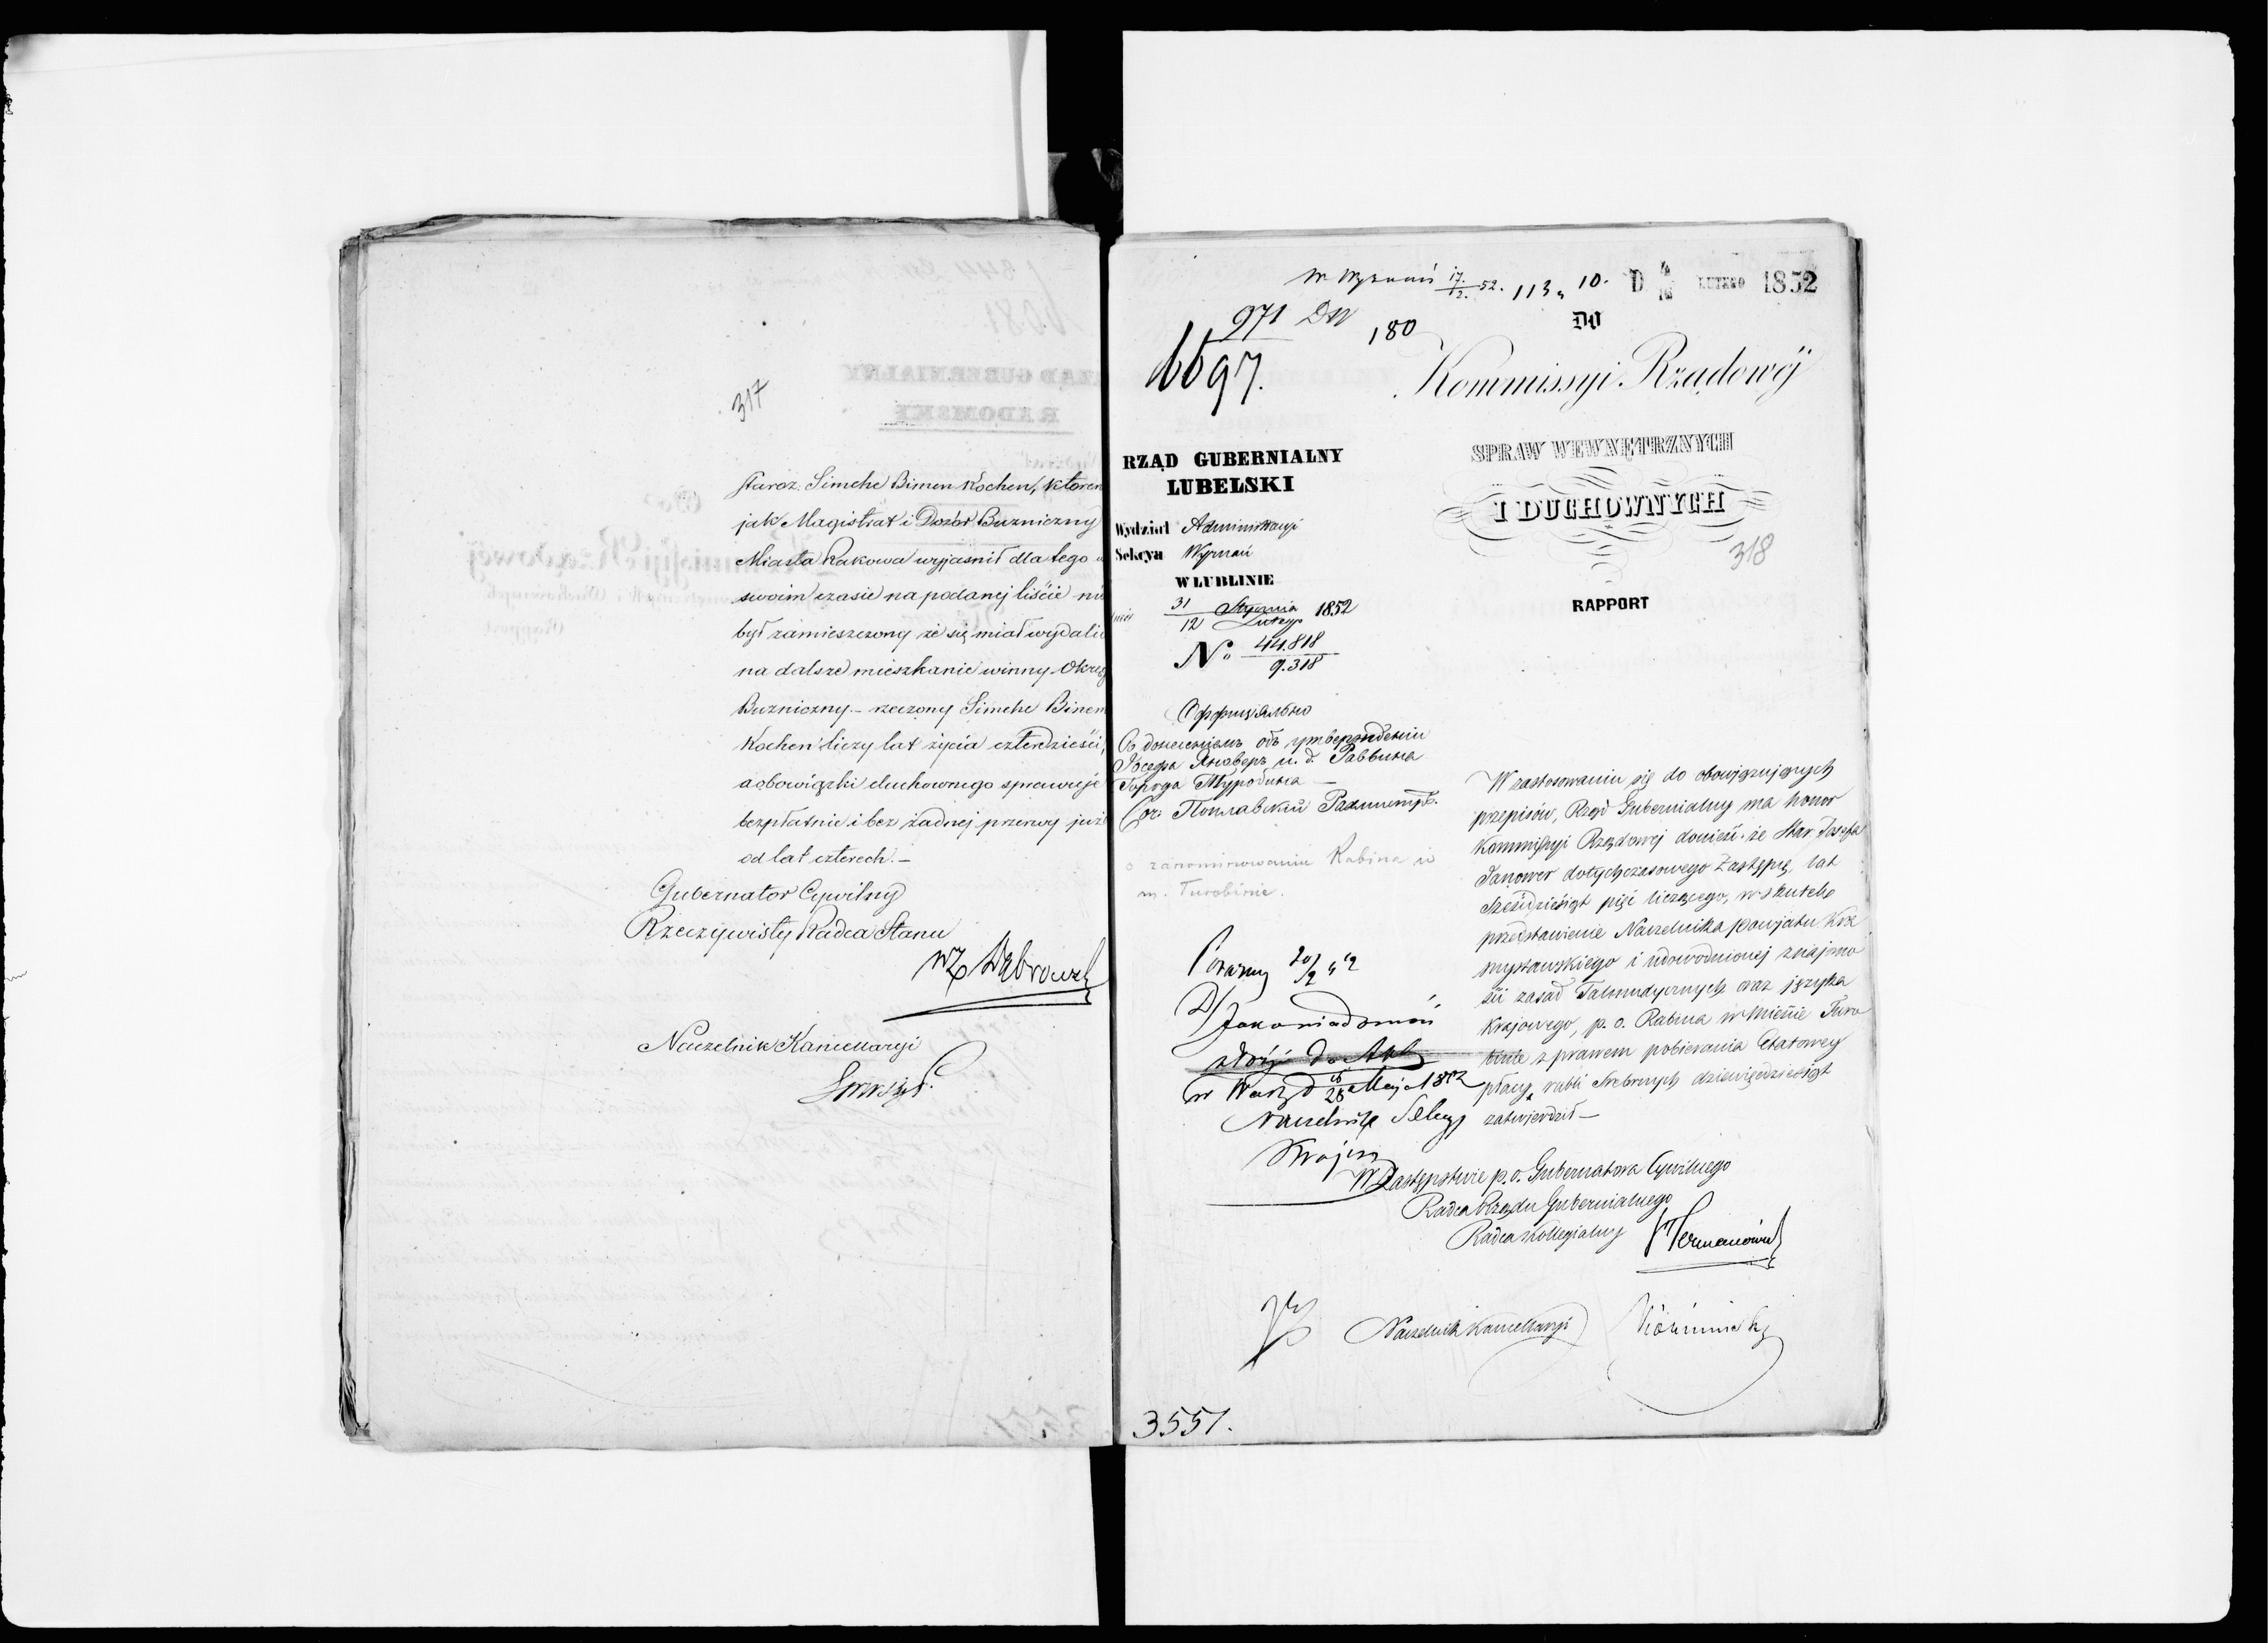 317
staroz. Simche Bimen Kochen, ktoren
jak Magistrat i Dozór Buzniczny
Miasta Rakowa wyjasnił dla tego
swoim czasie na podanej liście
był zamieszczony że się miał wydalić
na dalsze mieszkanie winny Okręg
Buzniczny. – rzeczony Simche Binem
Kochen liczy lat życia czterdzieści,
a obowiązki duchownego sprawuje
bezpłatnie i bez żadnej przerwy już
od lat czterech. –
Gubernator Cywilny
Rzeczywisty Radca Stanu
Naczelnik Kancellaryi
W. Wyznań 17/2. 52. 113. 10. D 4/16 LUTEGO 1852
971 DW 180
DO
6697.
Kommissyi Rządowéj
SPRAW WEWNĘTRZNYCH
I DUCHOWNYCH
318
RAPPORT
RZĄD GUBERNIALNY
LUBELSKI
Wydział Administracyi
Sekcya Wyznań
W LUBLINIE
31 Stycznia / 12 Lutego 1852
No 44.818 / 9.318
Оффиціально
Съ донесеніемъ объ утвержденіи
Іосефа Яновера и. д. Раввина
Города Туробина –
Пoплавскій
o zanominowaniu Rabina w
m. Turobinie.
W zastosowaniu się do obowiązujących
przepisów, Rząd Gubernialny ma honor
Kommissyi Rządowej donieść, że Star. Josefa
Janower dotychczasowego Zastępcę, lat
sześćdziesiąt pięć liczącego, w skutek
przedstawienie Naczelnika powjatu Kra
snystawskiego i udowodnionej znajomo
ści zasad Talmudycznych oraz języka
Krajowego, p. o. Rabina w Mieście Turo
binie z prawem pobierania Etatowey
płacy rubli Srebrnych dziewięćdziesiąt
zatwierdził –
20/2 52
w Warsz d 16/28 Maja 1852
Naczelnik Sekcyi
W Zastępstwie p. o. Gubernatora Cywilnego
Radca Rządu Gubernialnego
Radca Kollegialny
Naczelnik Kancellaryi
3551.